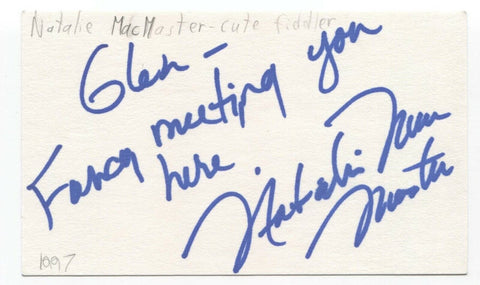 Natalie MacMaster-cute fiddler
Glen -
Fancy meeting you
here.
Natalie Mac
Master
1997